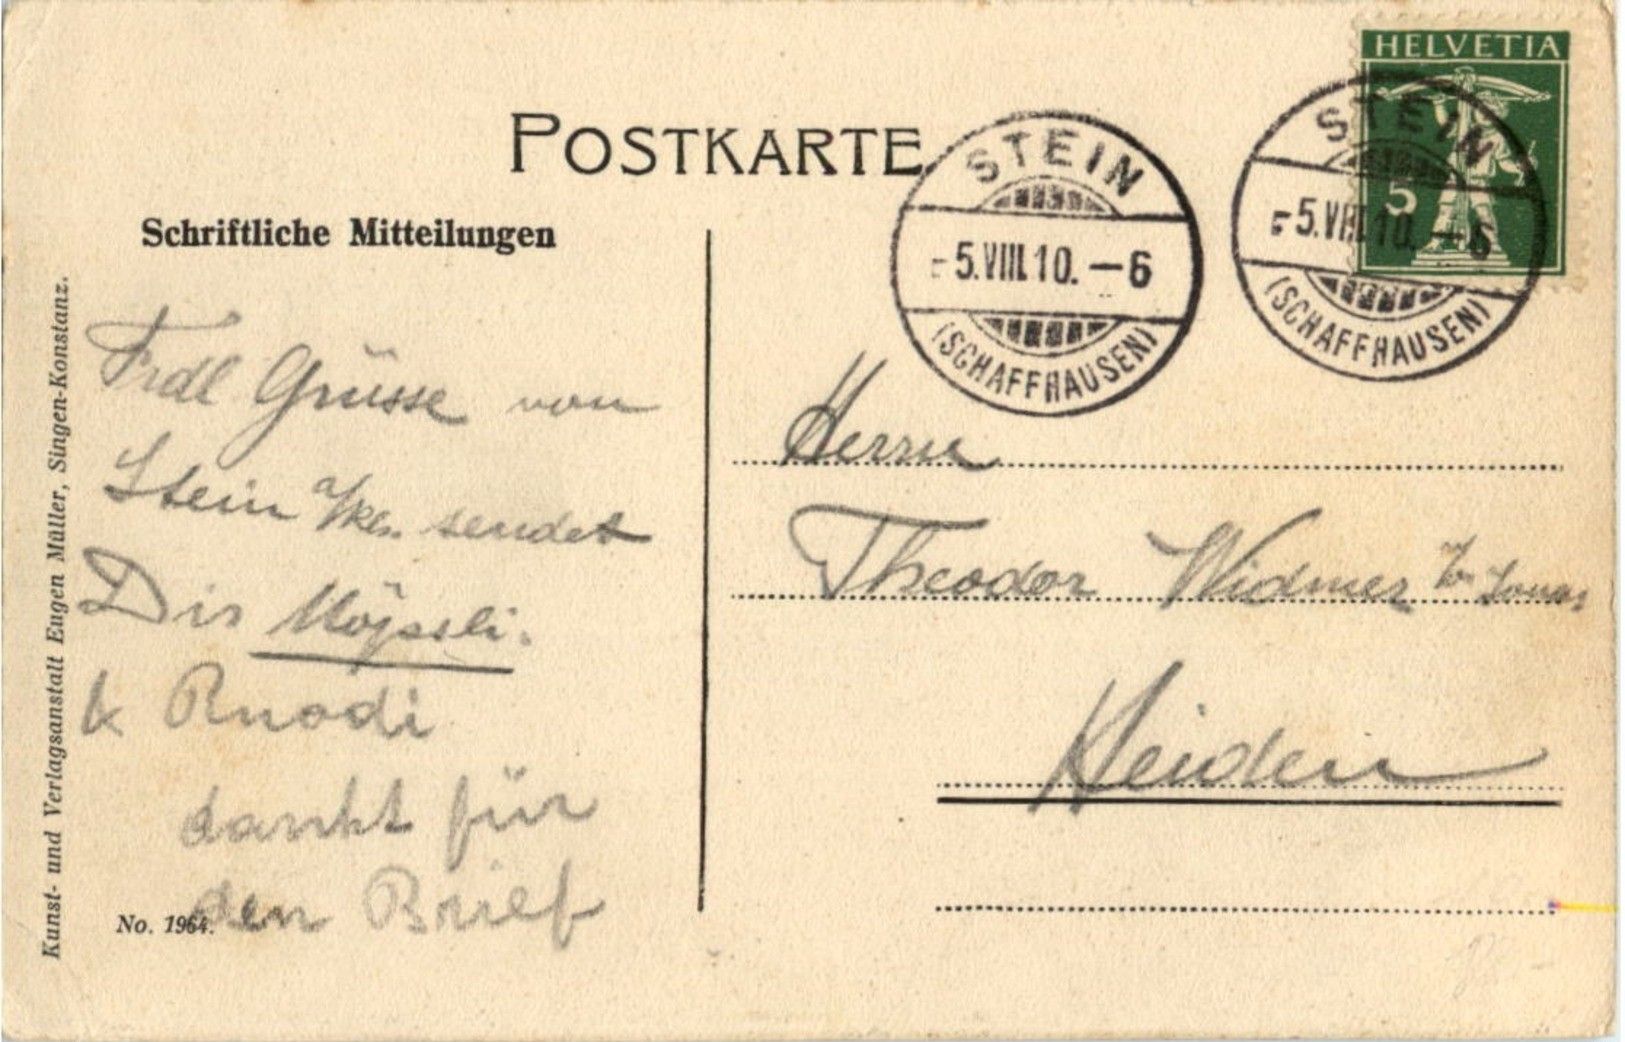 HELVETIA
5
POSTKARTE
STEIN
5.VIII.10.—6
(SCHAFFHAUSEN)
STEIN
5.VIII.10.—6
(SCHAFFHAUSEN)
Schriftliche Mitteilungen
Frdl Grüsse von
Stein a/Rh. sendet
Dir
& Ruodi
dankt für
den Brief
No. 1964.
Kunst- und Verlagsanstalt Eugen Müller, Singen-Konstanz.
Herrn
Theodor Widmer
Heiden